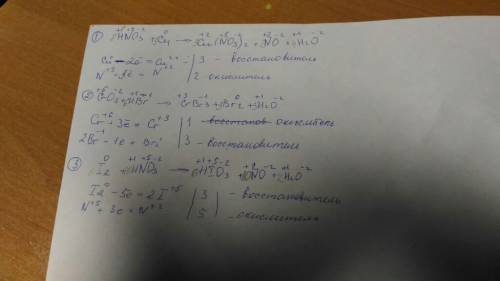 ① 8HNO₃ + 3Cu → 3Cu(NO₃)₂ + 2NO + 4H₂O
Cu⁰ - 2ē = Cu²⁺ | 3 - восстановитель
N⁺⁵ + 3ē = N⁺² | 2 окислитель
② CrO₃ + HBr → CrBr₃ + Br₂ + H₂O
Cr⁺⁶ - 3ē = Cr⁺³ | 1 окислитель
2Br⁻¹ - 1e = Br₂⁰ | 3 - восстановитель
③ I₂ + HNO₃ → HIO₃ + NO + H₂O
I₂⁰ - 5e = 2I⁺⁵ | 3 - восстановитель
N⁺⁵ + 3e = N⁺² | 5 - окислитель